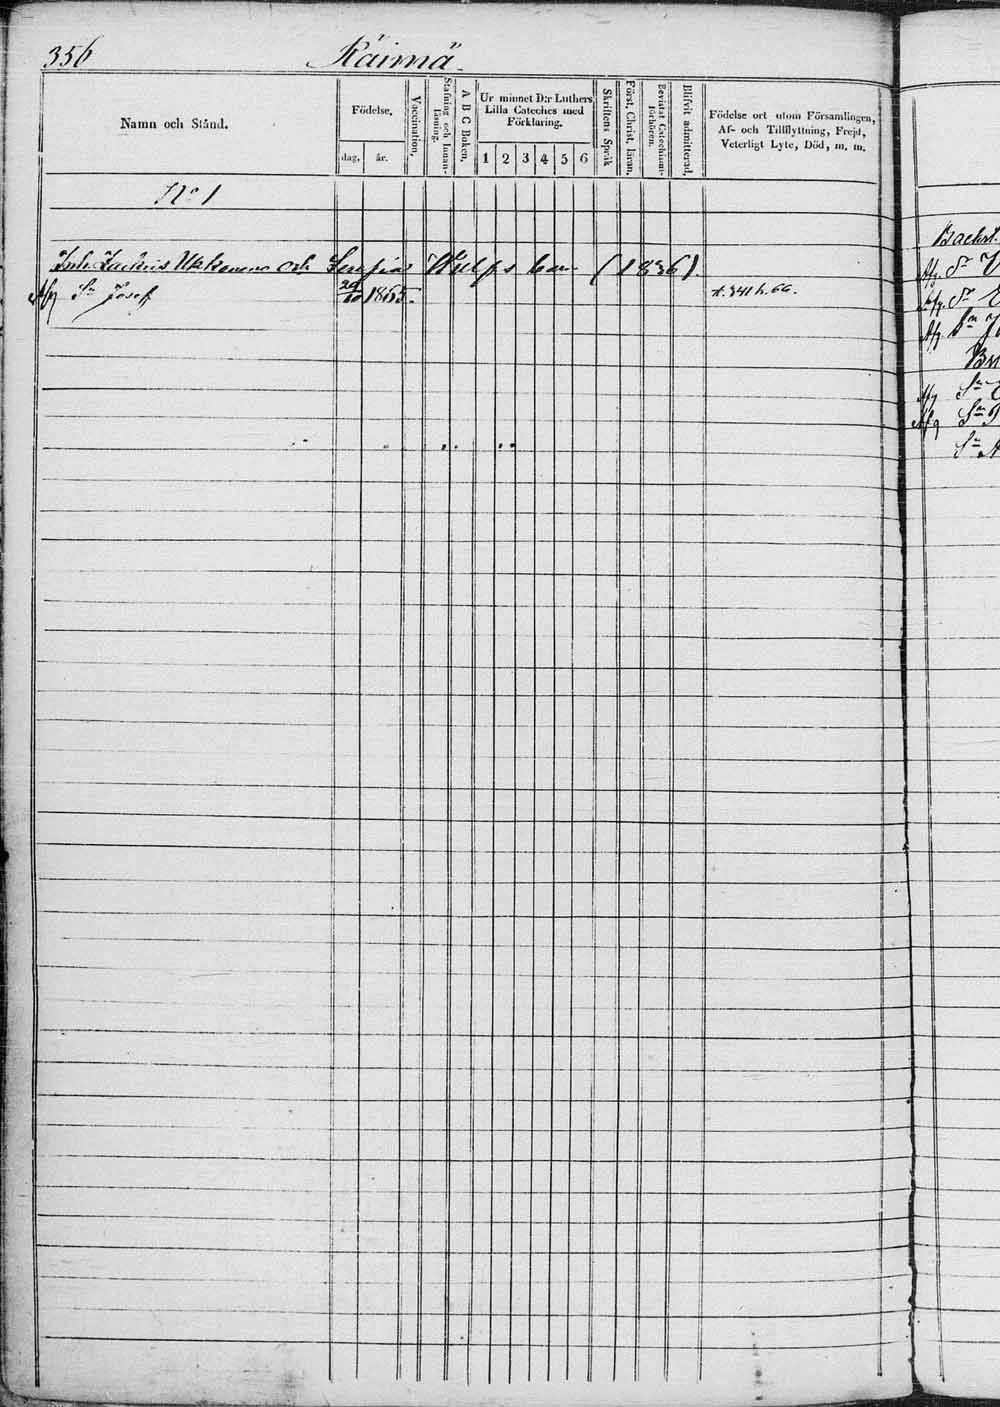 356 Käimä
Namn och Stånd.
Födelse.
dag. år.
Vaccination.
Stafning och Innanläsning.
A B C Boken.
Ur minnet D:r Luthers
Lilla Cateches med
Förklaring.
1 2 3 4 5 6
Skriftens Språk
Först. Christ. läran.
Bevistat Catechismiförhören.
Blifvit admitterad.
Födelse ort utom Församlingen,
Af- och Tillflyttning, Frejd,
Veterligt Lyte, Död, m. m.
No 1
Inh. Zachris Ukkonens och barn (1836).
Afg Sn Josef 29/10 1865. 341 h. 66.
Bachst.
Afg. Sr
Afg. Sr
Afg Sn
Afg Sn
Afg Sn
Sn